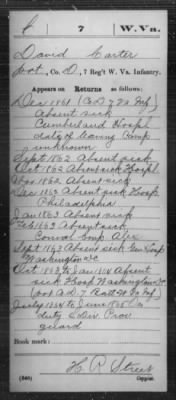 C 7 W. Va.
David Carter
, Co. D, 7 Reg't W. Va. Infantry.
Appears on Returns as follows:
Dec 1861
Absent sick
Cumberland Hospl
date of leaving Comp
unknown
Sept 1862 Absent sick
Oct 1862 Absent sick Hospl
1862 Absent sick
Dec 1862 Absent sick Hosp
Philadelphia
Jan 1863 Absent sick
Feb 1863 Absent sick
Conval Camp Alex
Sept 1863 Absent sick Gen Hosp
Washington DC
Oct 1863 to Jan 1864 Absent
sick Hosp Washington DC
July 1864 to June 1865 on
duty 2 Div Prov
guard
Book mark:
H. R. Street
(546) Copyist.